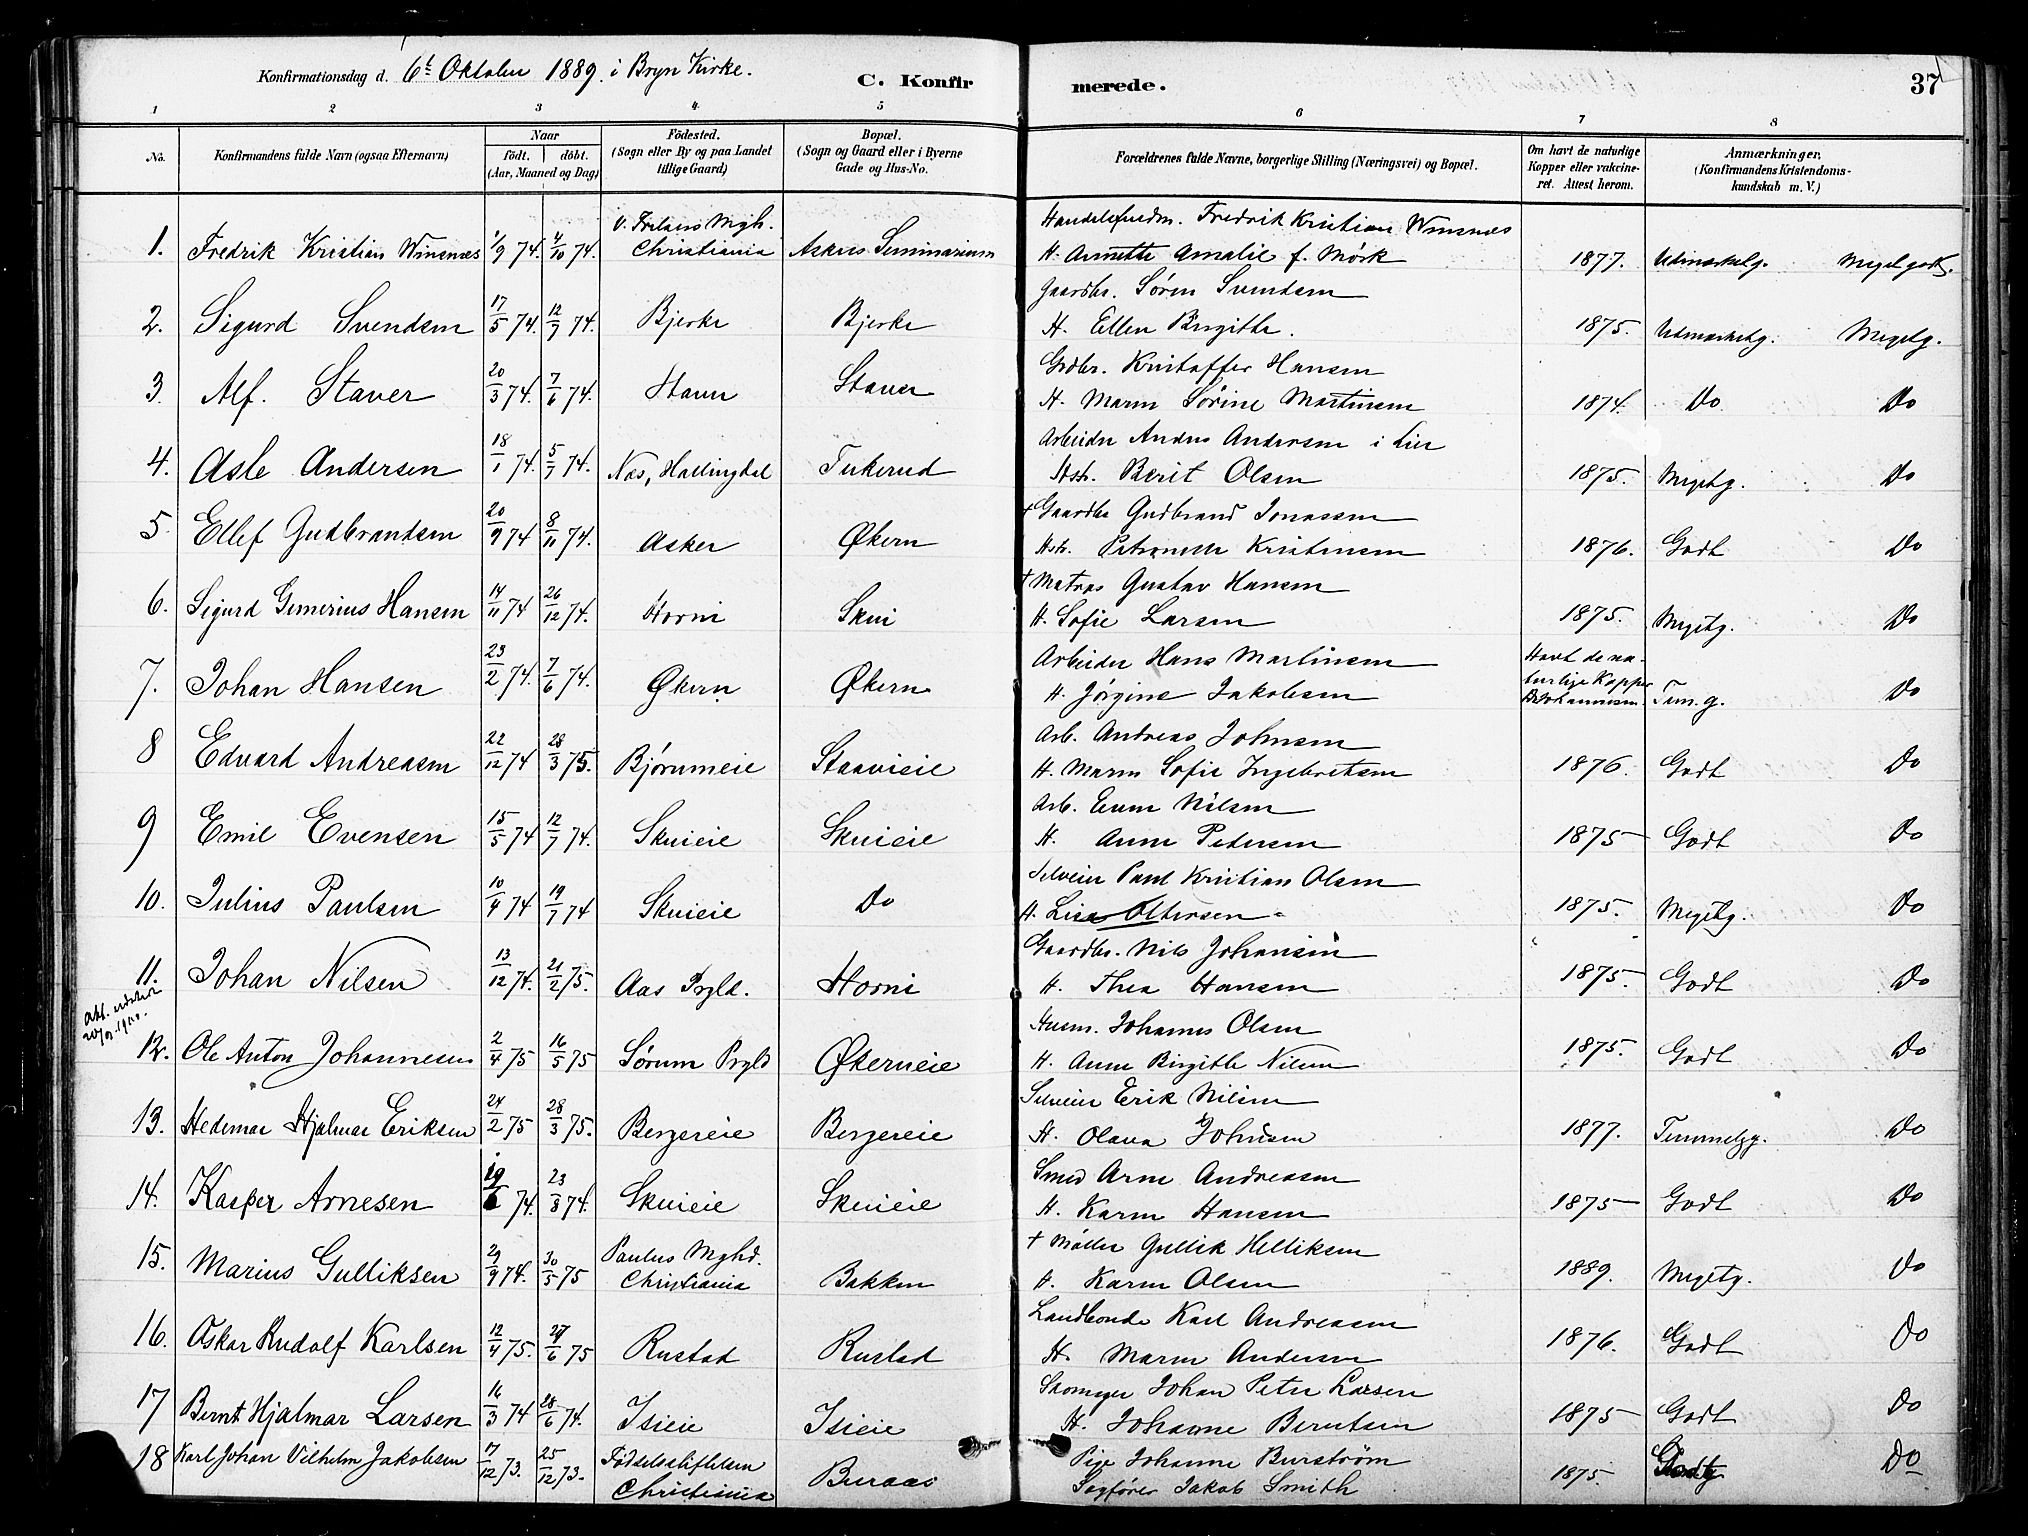 Konfirmationsdag d. 6t Oktober 1889. i Bryn Kirke.
C. Konfirmerede.
37
1 2 3 4 5 6 7 8
No.
Konfirmandens fulde Navn (ogsaa Efternavn)
Naar
födt. döbt.
(Aar, Maaned og Dag)
Födested.
(Sogn eller By og paa Landet
tillige Gaard)
Bopæl.
(Sogn og Gaard eller i Byerne
Gade og Hus-No.
Forældrenes fulde Navne, borgerlige Stilling (Næringsvei) og Bopæl.
Om havt de naturlige
Kopper eller vakcine-
ret. Attest herom.
Anmærkninger,
(Konfirmandens Kristendoms-
kundskab m. V.)
V. Frelsers Mgh. Fredrik Kristian Winsnes
1. Fredrik Kristian Winsnes 1/9 74. 4/10 74. Christiania Askers Seminarium H. Annette Amalie f. Mörk 1877. Udmærketg. Meget godt.
Gaardbr. Sören Svendsen
2. Sigurd Svendsen 17/5 74. 12/7 74. Bjerke Bjerke H. Ellen Birgithe. 1875. Udmærketg. Megetg.
Grdbr. Kristoffer Hansen
3. Alf. Staver 20/3 74. 7/6 74. Staver Staver H. Maren Sörine Martinsen 1874. Do Do
Arbeider Anders Andersen i Lier
4. Asle Andersen 18/1 74. 5/7 74. Næs, Hallingdal Tukerud Hstr. Berit Olsen 1875. Megetg. Do
+ Gaardbr Gudbrand Jonassen
5. Ellef Gudbrandsen 20/9 74 8/11 74. Asker Økern Hstr. Petronelle Kristensen 1876. Godt Do
+ Matros Gustav Hansen
6. Sigurd Gemerius Hansen 14/11 74 26/12 74. Horni Skui H. Sofie Larsen 1875. Megetg. Do
Arbeider Hans Martinsen Havt de na-
7. Johan Hansen 23/2 74. 7/6 74. Økern Økern H. Jörgine Jakobsen turlige Kopper Tem. g. Do
Arb. Andreas Johnsen
8 Edvard Andreasen 22/12 74 28/3 75. Bjørumeie Staavieie H. Maren Sofie Ingebretsen 1876. Godt Do
Arb. Even Nilsen
9 Emil Evensen 15/5 74 12/7 74. Skuieie Skuieie H. Anne Pedersen 1875 Godt Do
Selveier Paul Kristian Olsen
10. Julius Paulsen 10/4 74 19/7 74 Skuieie Do H. Lisa Oltersen 1875. Megetg. Do
Gaardbr. Nils Johansen
11. Johan Nilsen 13/12 74. 21/2 75. Aas Prgld. Horni H. Thea Hansen 1875. Godt Do
Husm. Johannes Olsen
12. Ole Anton Johannesen 2/4 75 16/5 75 Sørum Prgld Økerneie H. Anne Birgithe Nilsen 1875. Godt Do
Selveier Erik Nilsen
13. Hedemar Hjalmar Eriksen 24/2 75 28/3 75. Bergereie Bergereie H. Olava Johnsen 1877. Temmeligg. Do
Smed Arne Andreasen
14. Kasper Arnesen 19/6 74. 23/8 74. Skuieie Skuieie H. Karen Hansen 1875 Godt Do
Paulus Mghd. + Möller Gullik Helliksen
15. Marius Gulliksen 29/9 74. 30/5 75 Christiania Bakken H. Karen Olsen 1889. Megetg. Do
Landbonde Karl Andreasen
16. Oskar Rudolf Karlsen 12/4 75. 27/6 75 Rustad Rustad H. Maren Andersen 1876. Godt Do
Skomager Johan Peter Larsen
17 Bernt Hjalmar Larsen 16/3 74 28/6 74. Isieie Isieie H. Johanne Berntsen 1875 Godt Do
Födselsstiftelsen Pige Johanne Burström
18 Karl Johan Vilhelm Jakobsen 17/12 73. 25/12 73. Christiania Buraas Sagförer Jakob Smith 1875 Godt Do